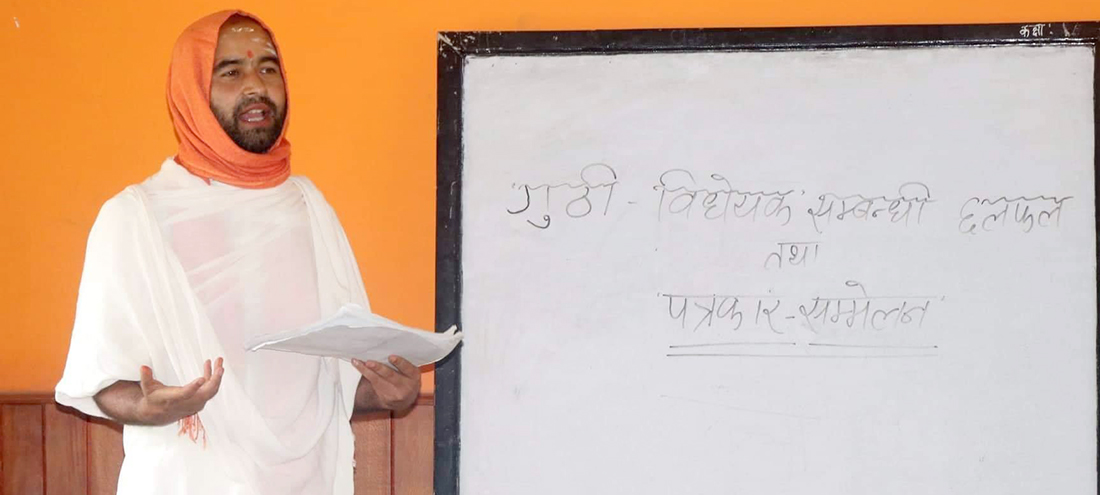 कक्षा :
गुठी - विधेयक सम्बन्धी छलफल
तथा
पत्रकार-सम्मेलन